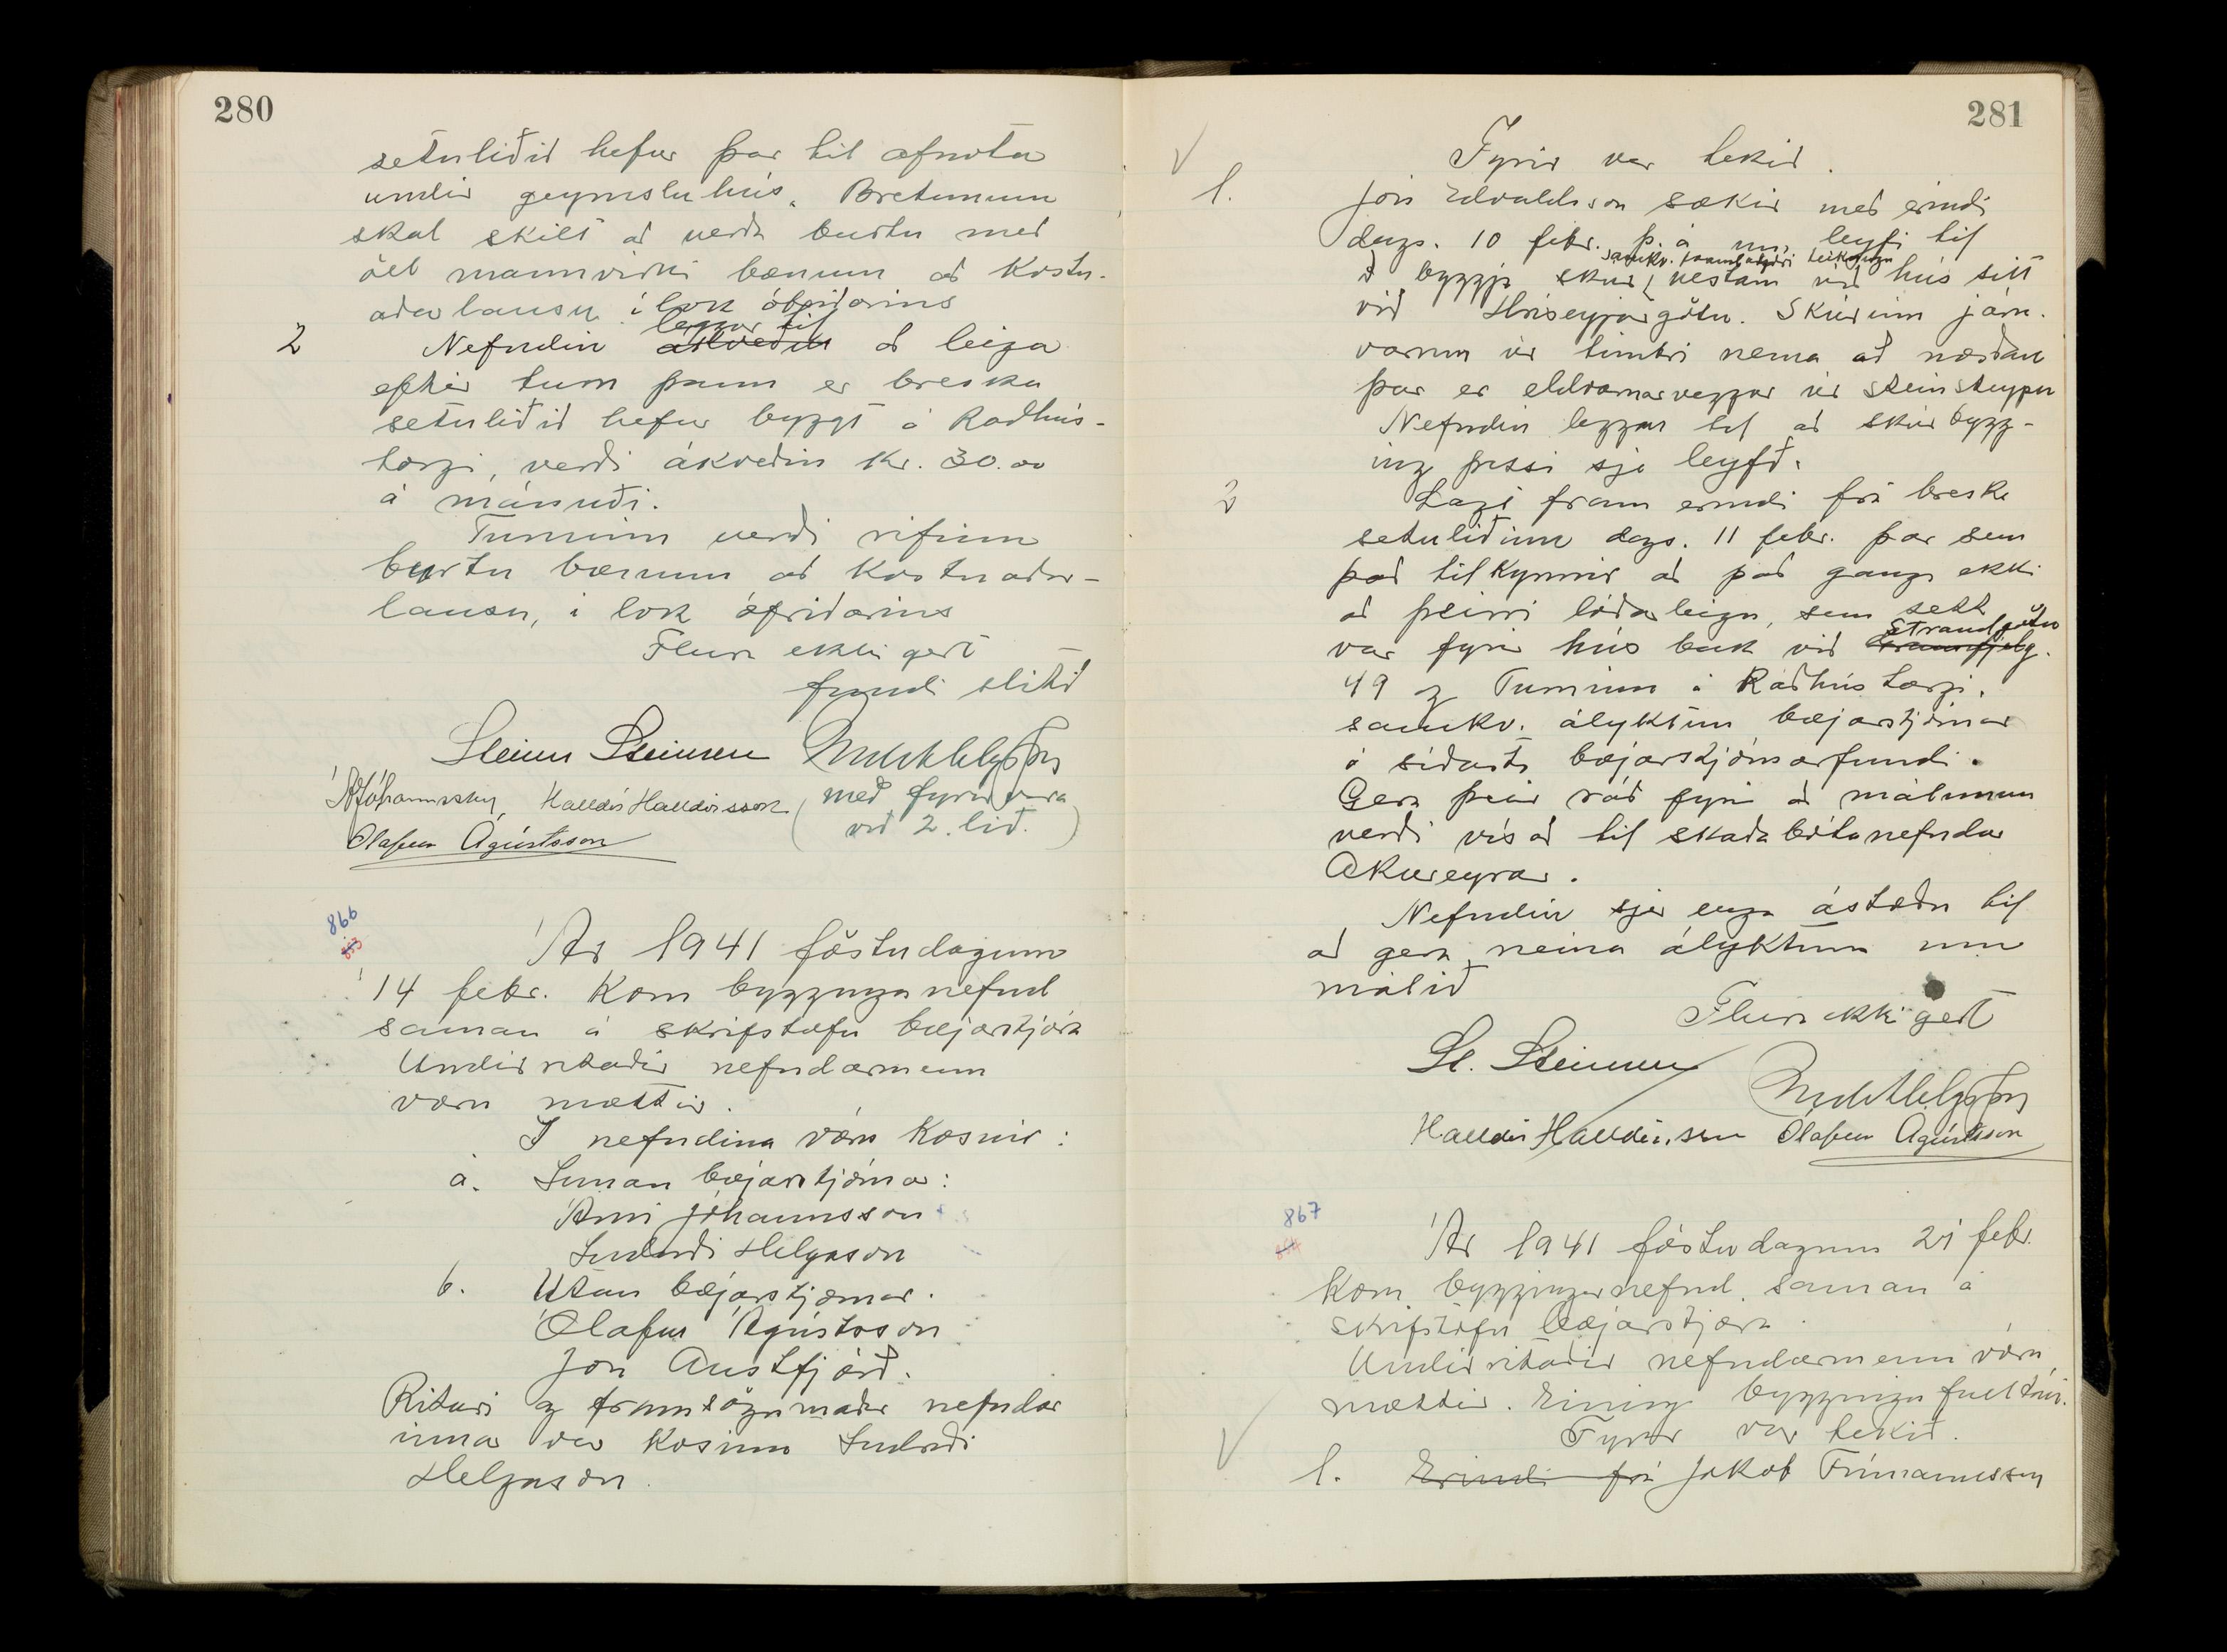 280
setuliðið hefur þar til afnota
undir geymsluhús. Bretunum
skal skilt að verða burtu með
öll mannvirki bænum að kostn-
aðarlausu í lok ófriðarins
leggur til
2 Nefndin ákveður að leiga
eftir turn þann er breska
setuliðið hefur byggt á Ráðhús-
torgi, verði ákveðin kr. 30.00
á mánuði.
Turninn verði rifinn
burtu bænum að kostnaðar-
lausu, í lok ófriðarins
Fleira ekki gert
fundi slitið
Steinn Steinsen
Á Jóhannsson, Halldór Halldórsson (með fyrirvara
Ólafur Ágústsson við 2. lið.)
866
Ár 1941 föstudaginn
14 febr. kom bygginganefnd
saman á skrifstofu bæjarstjóra
Undirritaðir nefndarmenn
voru mættir.
Í nefndina voru kosnir:
a. Innan bæjarstjórnar:
Árni Jóhannsson
Indriði Helgason
b. Utan bæjarstjórnar.
Ólafur Ágústsson
Jón Austfjörð.
Ritari og framsögumaður nefndar
innar var kosinn Indriði
Helgason.
281
Fyrir var tekið.
1. Jón Edvaldsson sækir með erindi
dags. 10 febr. þ.á um leyfi til
samkv. framlagðri teikningu
að byggja skúr vestan við hús sitt
við Hríseyjargötu. Skúrinn járn-
varinn úr timbri nema að norðan
þar er eldvarnarveggur úr steinsteypu
Nefndin leggur til að skúrbygg-
ing þessi sje leyfð.
2 Lagt fram erindi frá breska
setuliðinu dags. 11 febr. þar sem
það tilkynnir að það gangi ekki
að þeirri lóðaleigu, sem sett
Strandgötu
var fyrir hús bak við
49 og Turninn á Ráðhústorgi.
samkv. ályktun bæjarstjórnar
á síðasta bæjarstjórnarfundi.
Gera þeir ráð fyrir að málunum
verði vísað til skaðabótanefndar
Akureyrar.
Nefndin sjer enga ástæðu til
að gera neina ályktun um
málið
Fleira ekki gert
St. Steinsen
Halldór Halldórsson Ólafur Ágústsson
867
Ár 1941 föstudaginn 21 febr.
kom bygginganefnd saman á
skrifstofu bæjarstjóra.
Undirritaðir nefndarmenn voru
mættir. Einnig byggingafulltrúi.
Fyrir var tekið.
1. Erindi frá Jakob Frímannsson